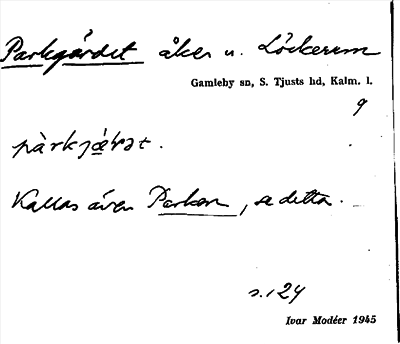 Parkgärdet åker u. Löckerum
Gamleby sn, S. Tjusts hd, Kalm. l.
9
Kallas även Parken, se detta.
s. 124
Ivar Modéer 1945